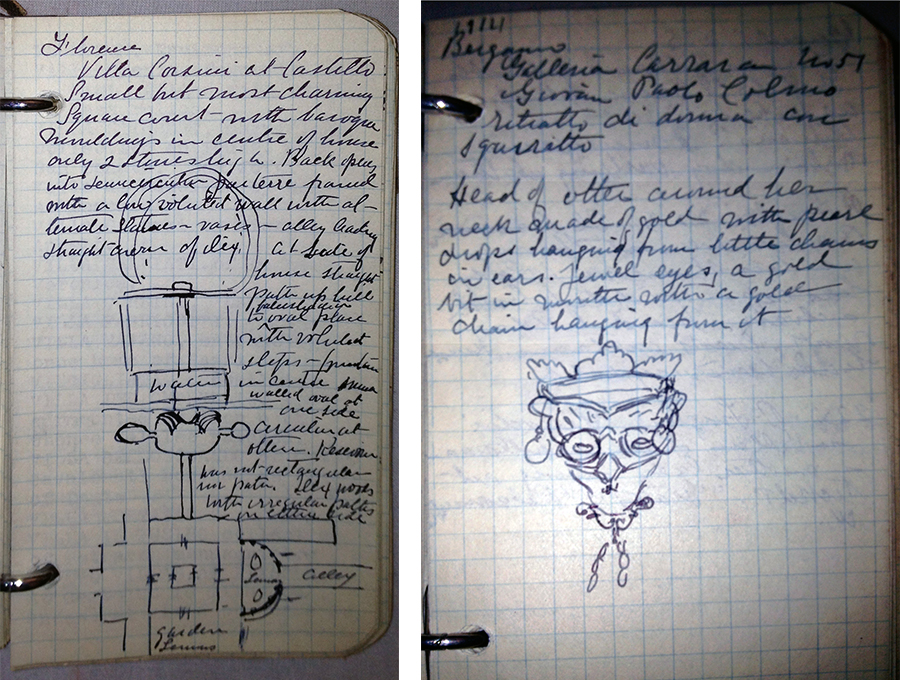 Florence
Villa Corsini at Castello
Small but most charming
Square court - with baroque
mouldings in centre of house
only 2 stories high. Back opens
into semicircular parterre framed
with a low voluted wall with al-
ternate statues - vases - alley leading
straight avenue of ilex. at side of
house straight
path up hill
to oval place
with voluted
steps - fountain
in centre
walled oval at
one side
circular at
other. Reservoir
but not rectangular
path. Ilex woods
with irregular paths
on either side
water
Lemons
alley
garden
Lemons
1914
Bergamo
Galleria Carrara No 51
Giovan Paolo Colmo
ritratto di donna con
sguratto
Head of otter around her
neck made of gold with pearl
drops hanging from little chains
in ears. Jewel eyes, a gold
bit in mouth with a gold
chain hanging from it